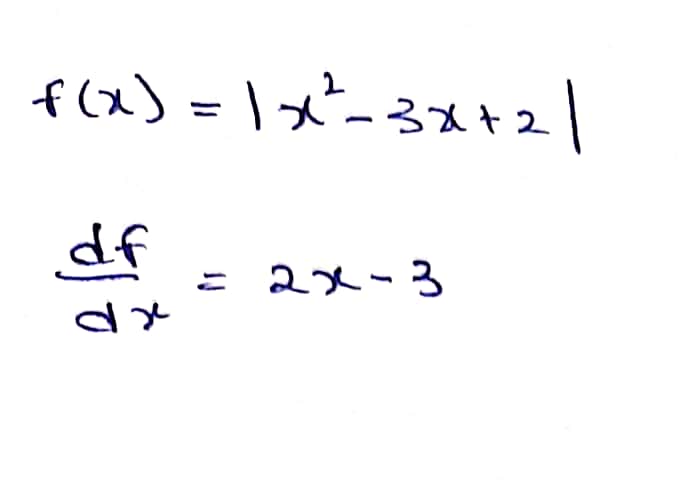 f(x) = |x² - 3x + 2|
df/dx = 2x - 3